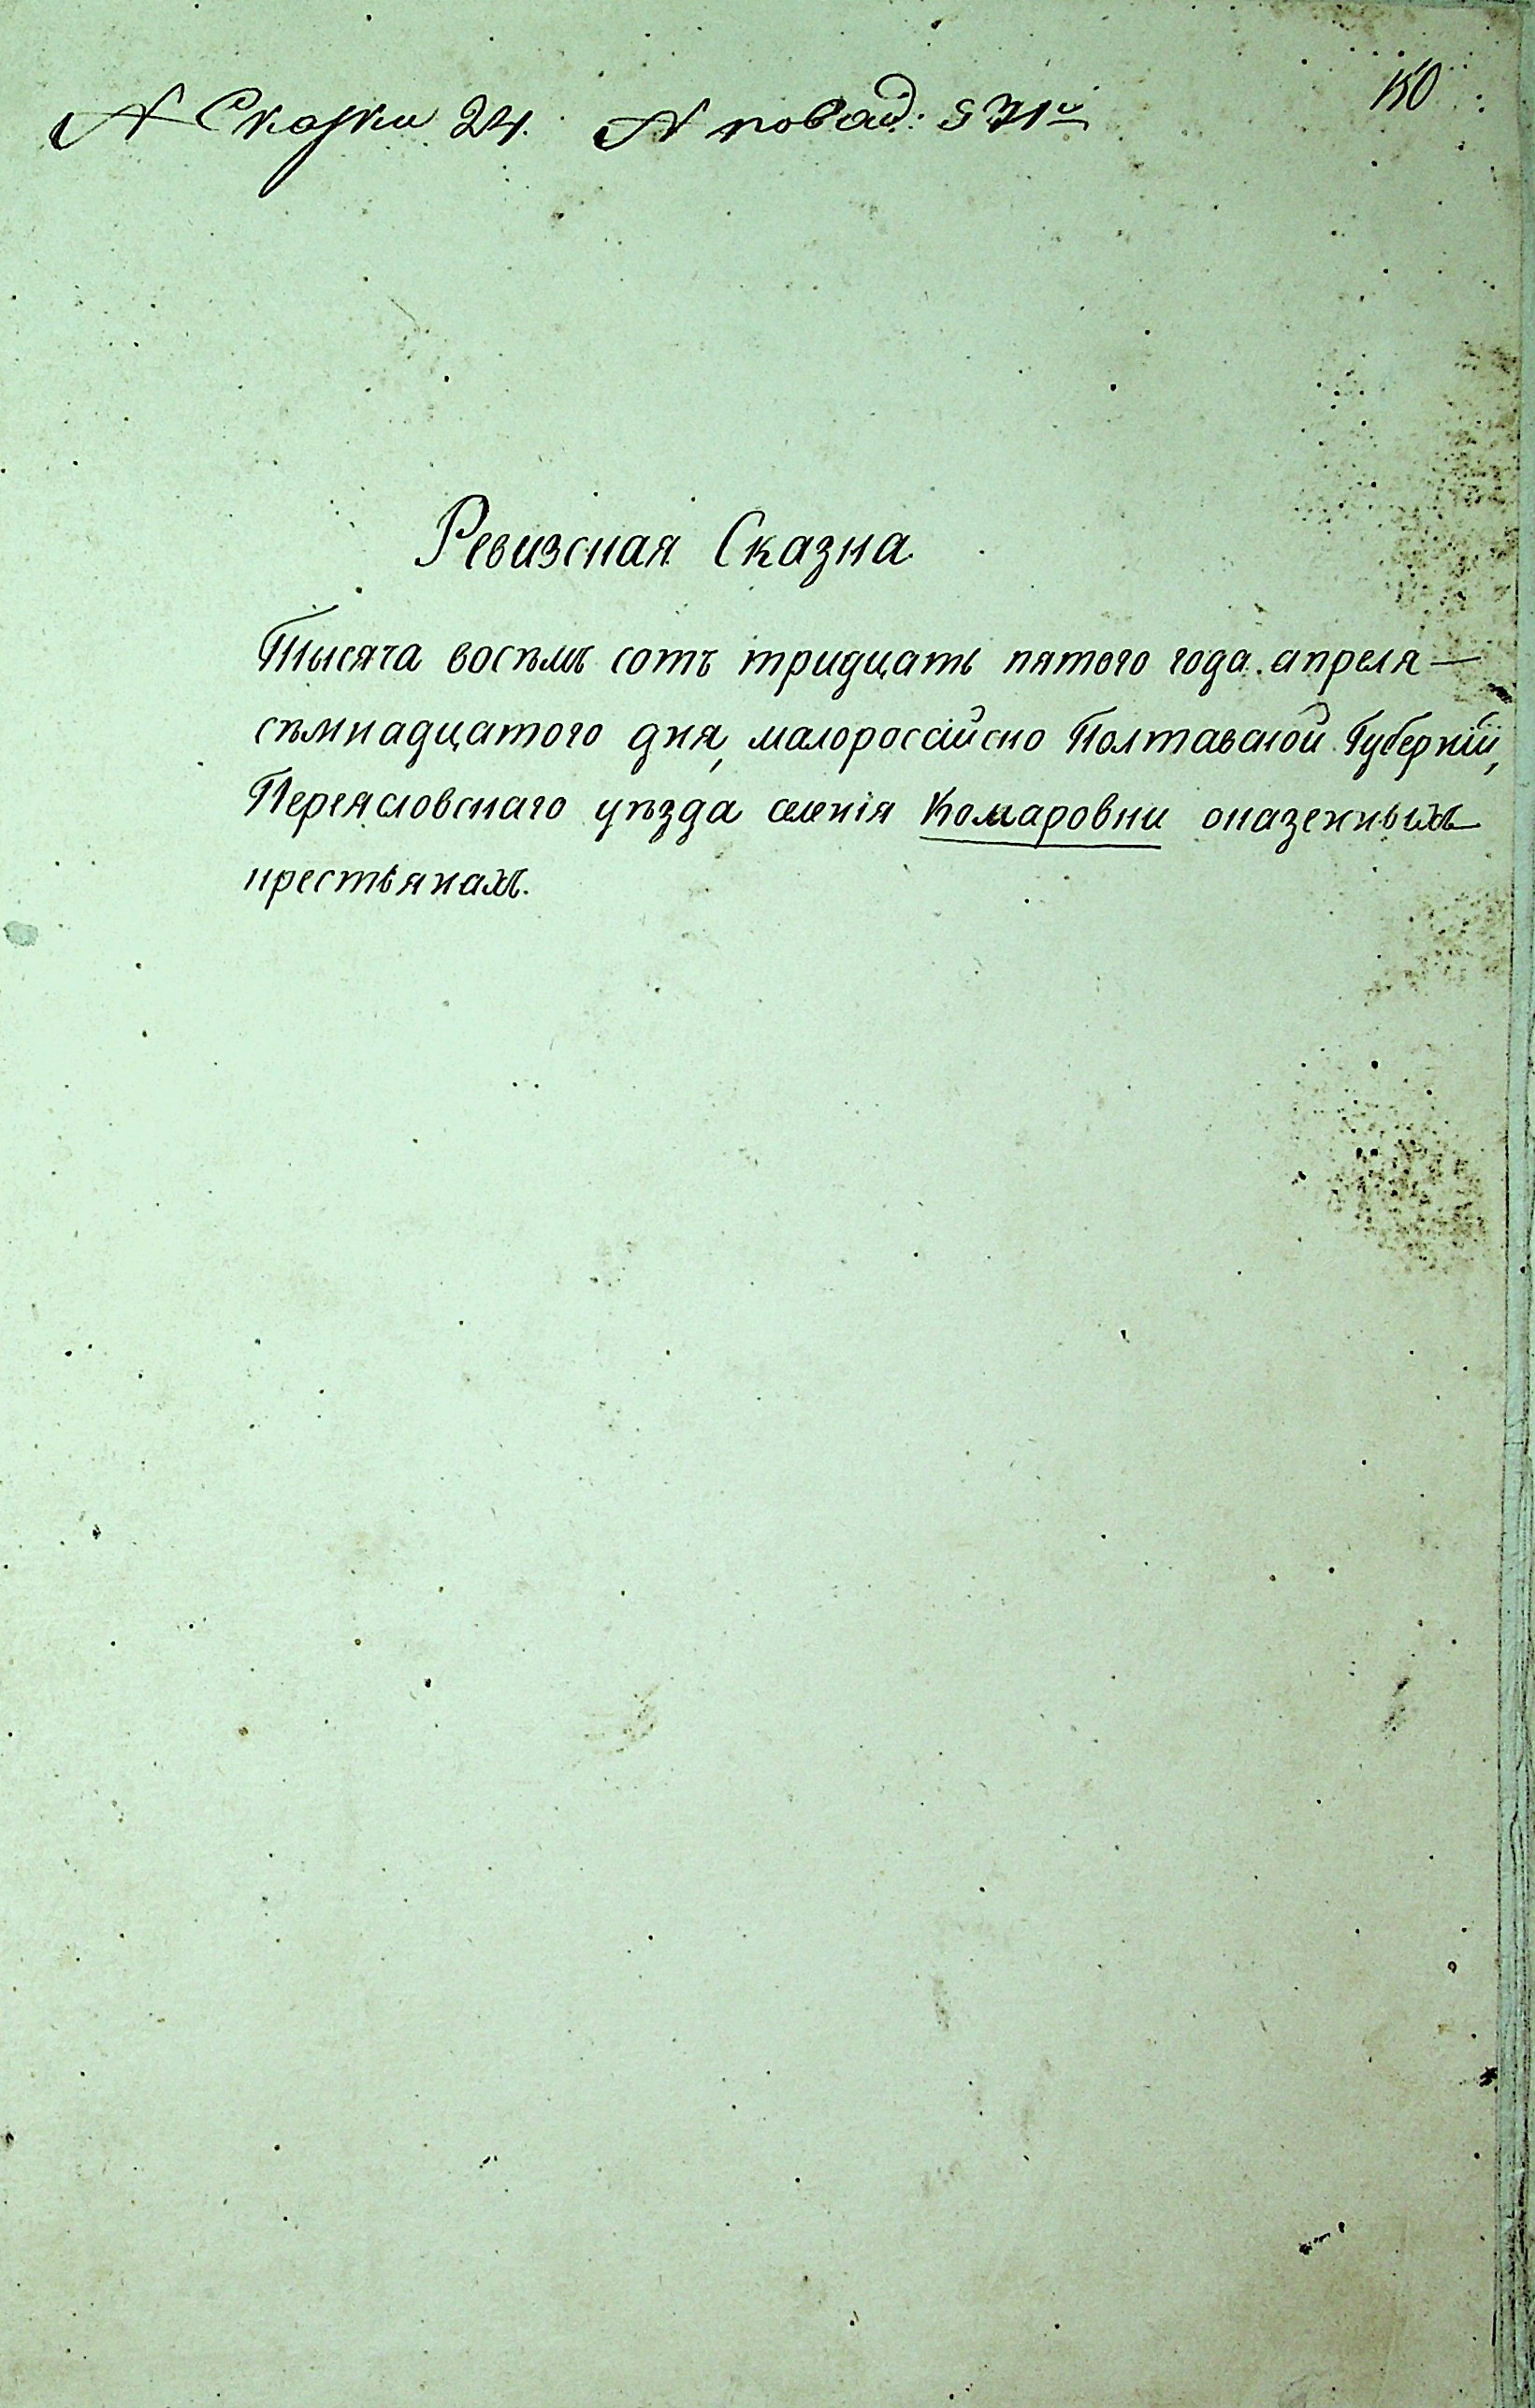 № Сказки 24. № повод: 571й
150
Ревизская Сказка
Тысяча восѣмъ сотъ тридцать пятого года апреля —
сѣмнадцатого дня, малороссійско Полтавской Губерніи,
Переясловскаго уѣзда селенія Комаровки оказенныхъ
крестьянахъ.